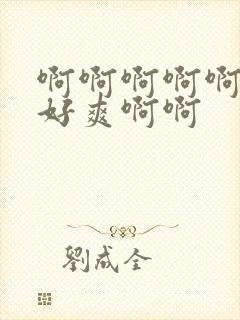 啊啊啊啊啊
好爽啊啊
劉成全